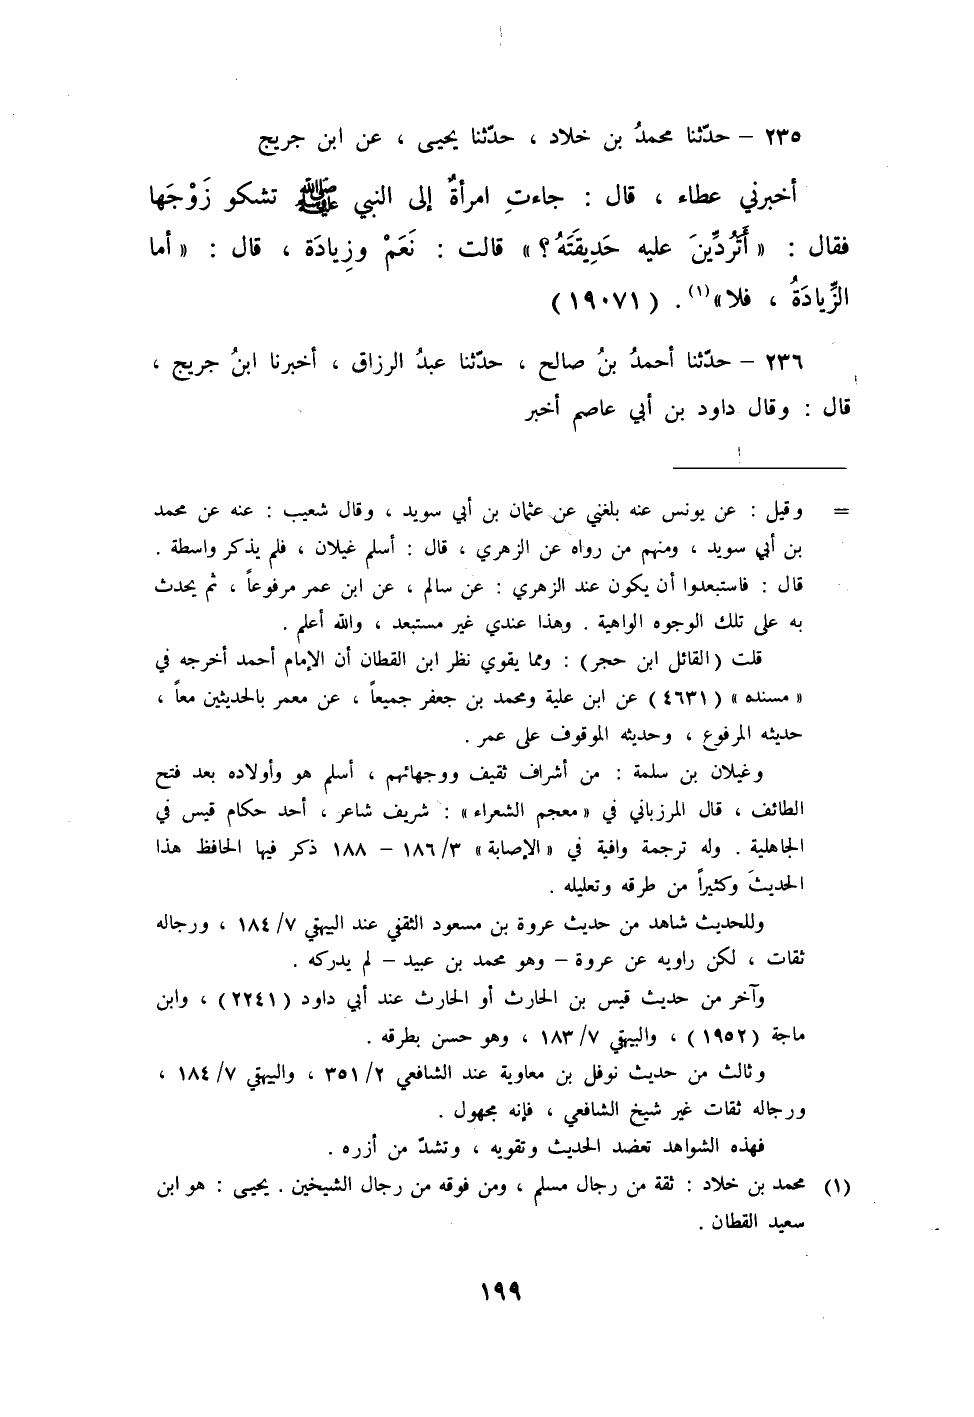 ٢٣٥ – حدّثنا محمدُ بن خلاد ، حدّثنا يحيى ، عن ابن جريج
أخبرني عطاء ، قال : جاءتِ امرأةٌ إلى النبي ﷺ تشكو زَوْجَها
فقال : « أَتَرُدِّينَ عليه حَدِيقَتَهُ ؟ » قالت : نَعَمْ وزِيادَة ، قال : « أما
الزِّيادَةُ ، فلا »(١) . (١٩٠٧١)
٢٣٦ – حدّثنا أحمدُ بنُ صالح ، حدّثنا عبدُ الرزاق ، أخبرنا ابنُ جريج ،
قال : وقال داود بن أبي عاصم أخبر
= وقيل : عن يونس عنه بلغني عن عثمان بن أبي سويد ، وقال شعيب : عنه عن محمد
بن أبي سويد ، ومنهم من رواه عن الزهري ، قال : أسلم غيلان ، فلم يذكر واسطة .
قال : فاستبعدوا أن يكون عند الزهري : عن سالم ، عن ابن عمر مرفوعاً ، ثم يحدث
به على تلك الوجوه الواهية . وهذا عندي غير مستبعد ، والله أعلم .
قلت (القائل ابن حجر) : ومما يقوي نظر ابن القطان أن الإمام أحمد أخرجه في
« مسنده » (٤٦٣١) عن ابن علية ومحمد بن جعفر جميعاً ، عن معمر بالحديثين معاً ،
حديثه المرفوع ، وحديثه الموقوف على عمر .
وغيلان بن سلمة : من أشراف ثقيف ووجهائهم ، أسلم هو وأولاده بعد فتح
الطائف ، قال المرزباني في « معجم الشعراء » : شريف شاعر ، أحد حكام قيس في
الجاهلية . وله ترجمة وافية في « الإصابة » ١٨٦/٣ – ١٨٨ ذكر فيها الحافظ هذا
الحديثَ وكثيراً من طرقه وتعليله .
وللحديث شاهد من حديث عروة بن مسعود الثقفي عند البيهقي ١٨٤/٧ ، ورجاله
ثقات ، لكن راويه عن عروة – وهو محمد بن عبيد – لم يدركه .
وآخر من حديث قيس بن الحارث أو الحارث عند أبي داود (٢٢٤١) ، وابن
ماجة (١٩٥٢) ، والبيهقي ١٨٣/٧ ، وهو حسن بطرقه .
وثالث من حديث نوفل بن معاوية عند الشافعي ٣٥١/٢ ، والبيهقي ١٨٤/٧ ،
ورجاله ثقات غير شيخ الشافعي ، فإنه مجهول .
فهذه الشواهد تعضد الحديث وتقويه ، وتشدّ من أزره .
(١) محمد بن خلاد : ثقة من رجال مسلم ، ومن فوقه من رجال الشيخين . يحيى : هو ابن
سعيد القطان .
١٩٩